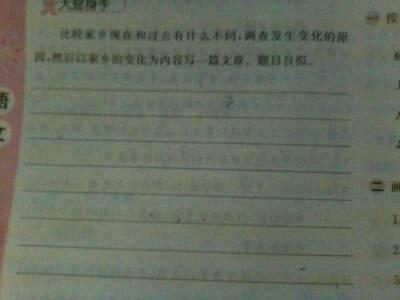 大显身手
比较家乡现在和过去有什么不同,调查发生变化的原
因,然后以家乡的变化为内容写一篇文章。题目自拟。
语
文
一 按
二 画
1.
2.
3.